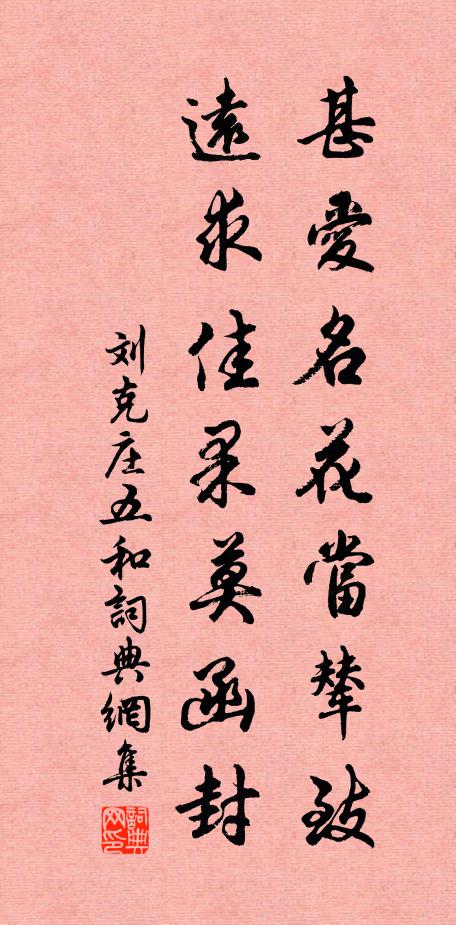 甚愛名花當輦致
遠求佳果莫函封
刘克庄五和詞典網集
詞典网印